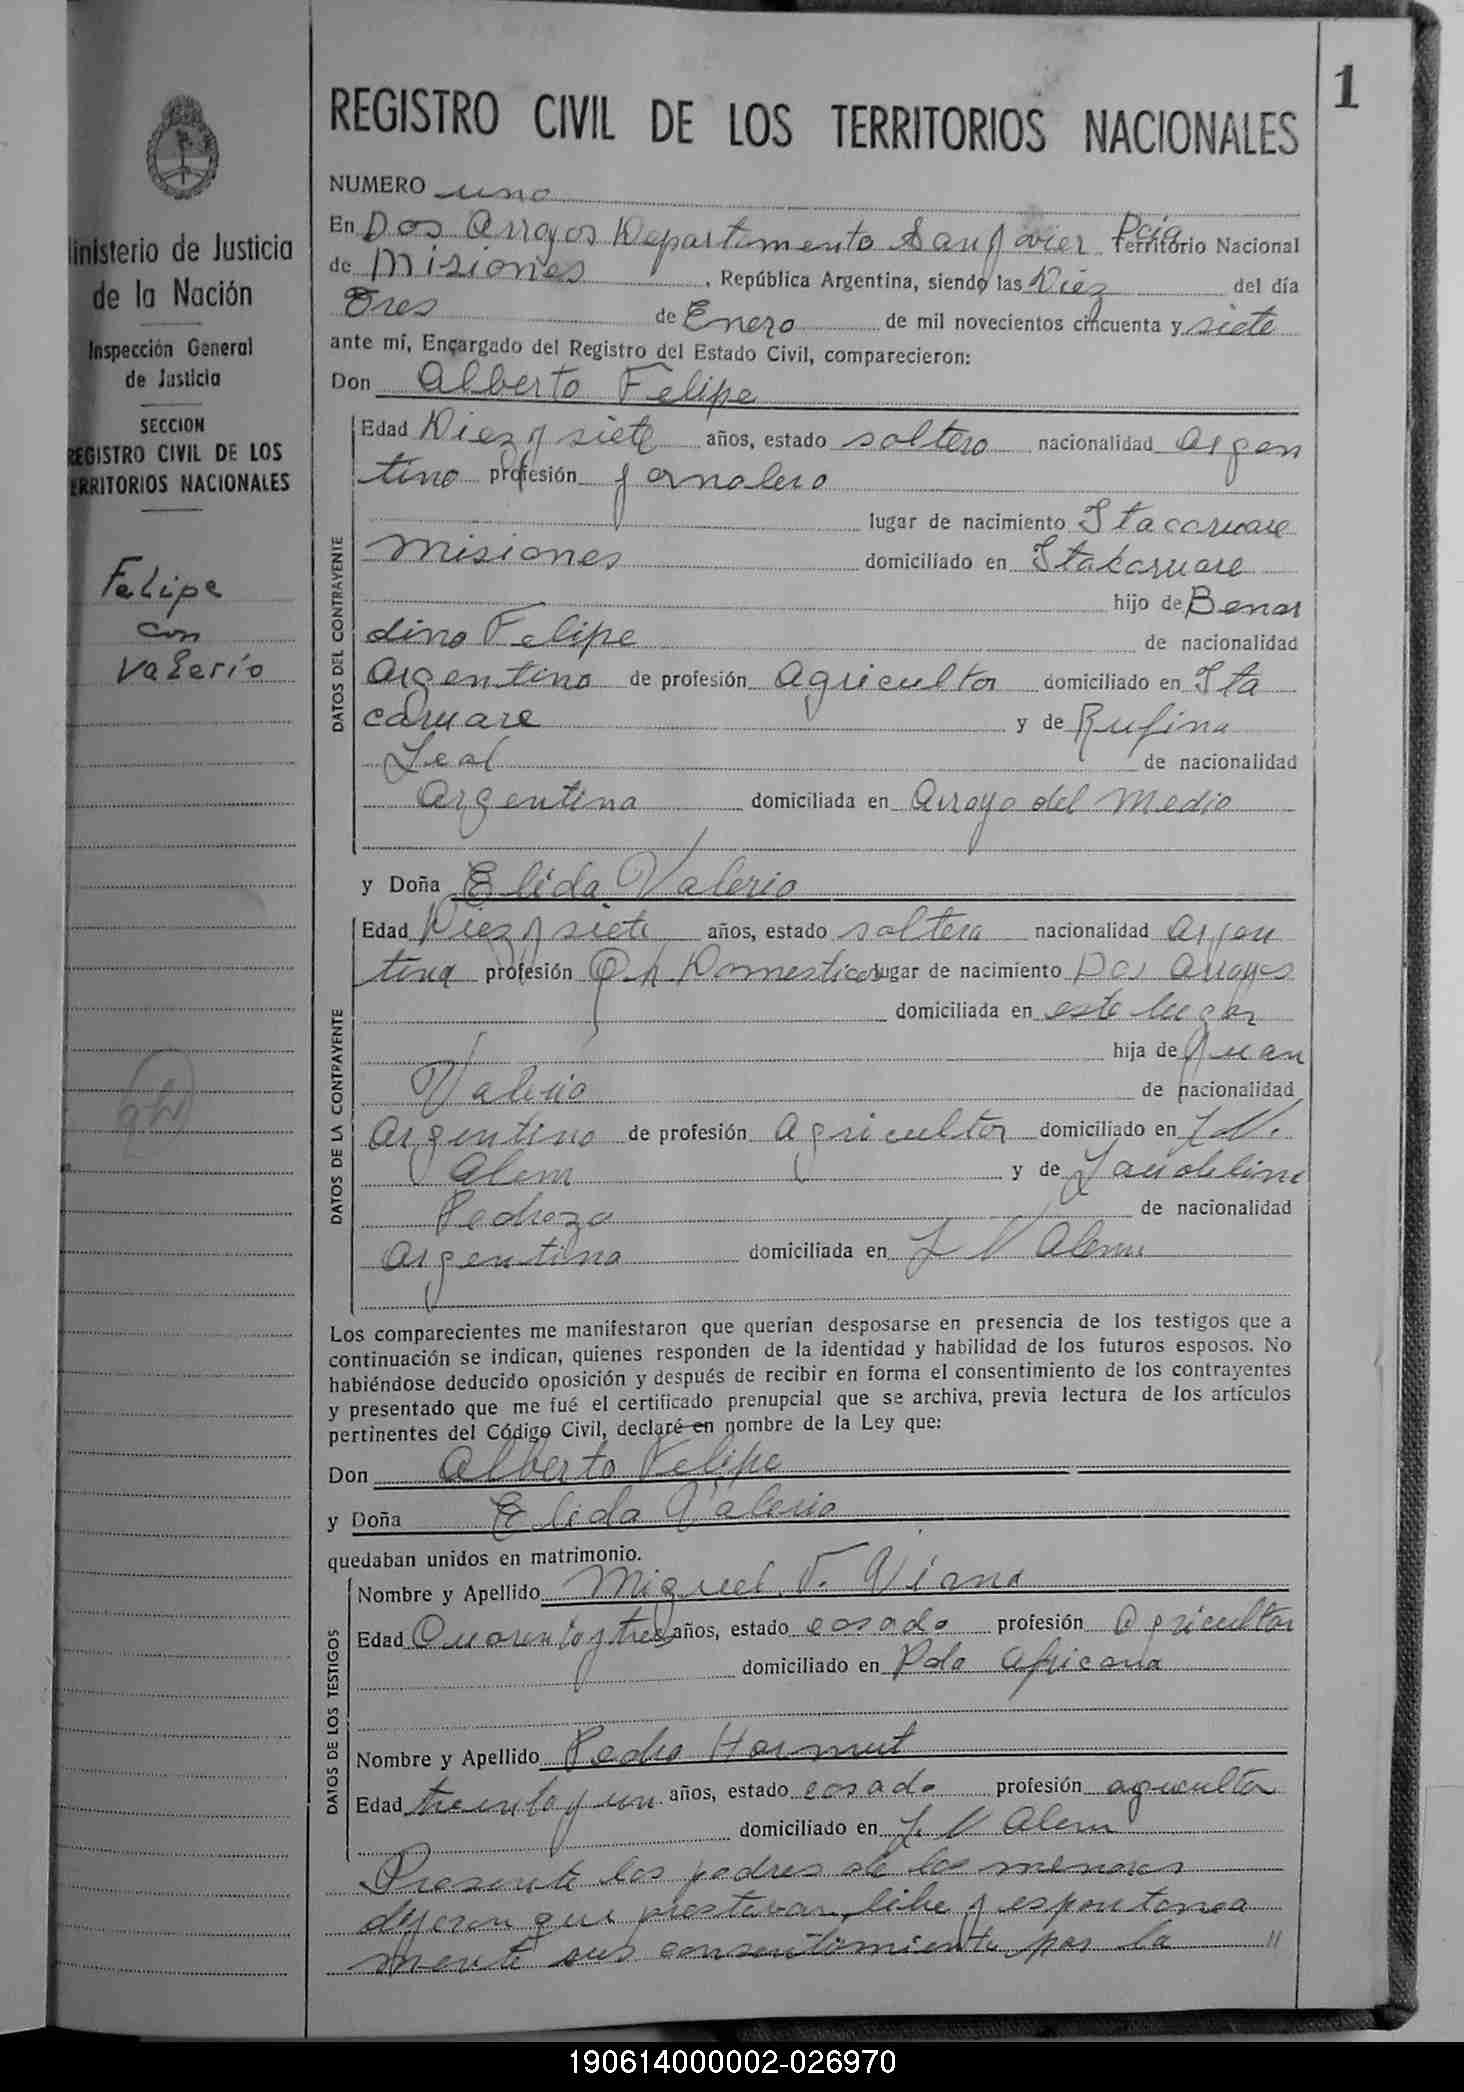 1
Ministerio de Justicia
de la Nación
Inspección General
de Justicia
SECCION
REGISTRO CIVIL DE LOS
TERRITORIOS NACIONALES
Felipe
con
Valerio
REGISTRO CIVIL DE LOS TERRITORIOS NACIONALES
NUMERO uno
En Dos Arroyos Departamento San Javier Pcia Territorio Nacional
de Misiones, República Argentina, siendo las Diez del día
Tres de Enero de mil novecientos cincuenta y siete
ante mí, Encargado del Registro del Estado Civil, comparecieron:
Don Alberto Felipe
DATOS DEL CONTRAYENTE
Edad Diez y siete años, estado soltero nacionalidad Argen
tino profesión Jornalero
lugar de nacimiento Itacaruare
Misiones domiciliado en Itakaruare
hijo de Benar
dino Felipe de nacionalidad
Argentino de profesión Agricultor domiciliado en Ita
caruare y de Rufina
Leal de nacionalidad
Argentina domiciliada en Arroyo del Medio
y Doña Elida Valerio
DATOS DE LA CONTRAYENTE
Edad Diez y siete años, estado soltera nacionalidad Argen
tina profesión Qh Domesticos lugar de nacimiento Dos Arroyos
domiciliada en este lugar
hija de Juan
Valerio de nacionalidad
Argentino de profesión Agricultor domiciliado en L N.
Alem y de
Pedrozo de nacionalidad
Argentina domiciliada en L N Alem
Los comparecientes me manifestaron que querían desposarse en presencia de los testigos que a
continuación se indican, quienes responden de la identidad y habilidad de los futuros esposos. No
habiéndose deducido oposición y después de recibir en forma el consentimiento de los contrayentes
y presentado que me fué el certificado prenupcial que se archiva, previa lectura de los artículos
pertinentes del Código Civil, declaré en nombre de la Ley que:
Don Alberto Felipe
y Doña Elida Valerio
quedaban unidos en matrimonio.
DATOS DE LOS TESTIGOS
Nombre y Apellido Miguel F. Viana
Edad Cuarenta y tres años, estado casado profesión Agricultor
domiciliado en Pdo Africana
Nombre y Apellido Pedro Hormut
Edad treinta y un años, estado casado profesión agricultor
domiciliado en L. N Alem
Presente los padres de los menores
dijeron que prestavan libre y espontanea
mente sus consentimiento por la "
190614000002-026970